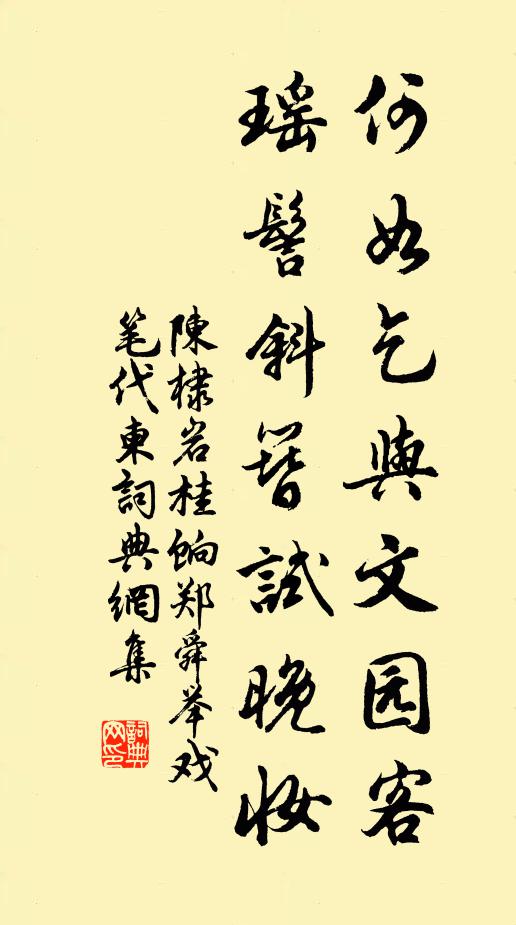 何如乞與文园客
瑶髻斜簪試晚妆
陳棣岩桂餉郑舜举戏
笔代東詞典網集
詞典